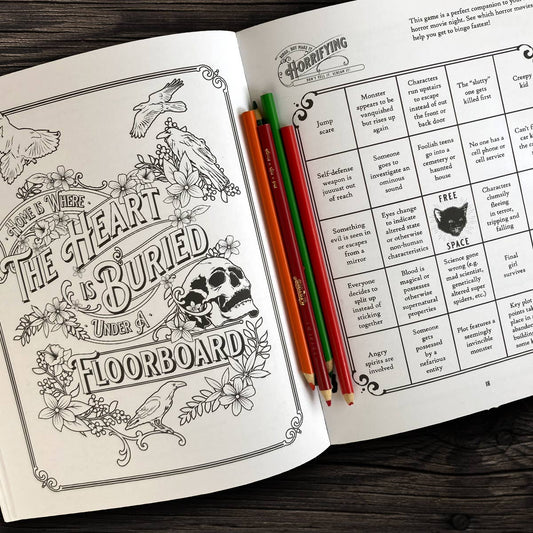 HOME IS WHERE
THE HEART
IS BURIED
UNDER A
FLOORBOARD
This game is a perfect companion to your
horror movie night. See which horror movies
help you get to bingo fastest!
BUT MAKE IT
HORRIFYING
DON'T YELL IT, SCREAM IT
Jump
scare
Monster
appears to be
vanquished
but rises up
again
Characters
run upstairs
to escape
instead of out
the front or
back door
The "slutty"
one gets
killed first
Creepy
kid
Self-defense
weapon is
just out
of reach
Someone
goes to
investigate an
ominous
sound
Foolish teens
go into a
cemetery or
haunted
house
No one has a
cell phone or
cell service
Can't
car
the
Something
evil is seen in
or escapes
from a
mirror
Eyes change
to indicate
altered state
or otherwise
non-human
characteristics
FREE
SPACE
Characters
clumsily
fleeing
in terror,
tripping and
falling
Everyone
decides to
split up
instead of
sticking
together
Blood is
magical or
possesses
otherwise
supernatural
properties
Science gone
wrong (e.g.
mad scientist,
genetically
altered super
spiders, etc.)
Final
girl
survives
Angry
spirits are
involved
Someone
gets
possessed
by a
nefarious
entity
Plot features a
seemingly
invincible
monster
Key plot
points
place in
building
some